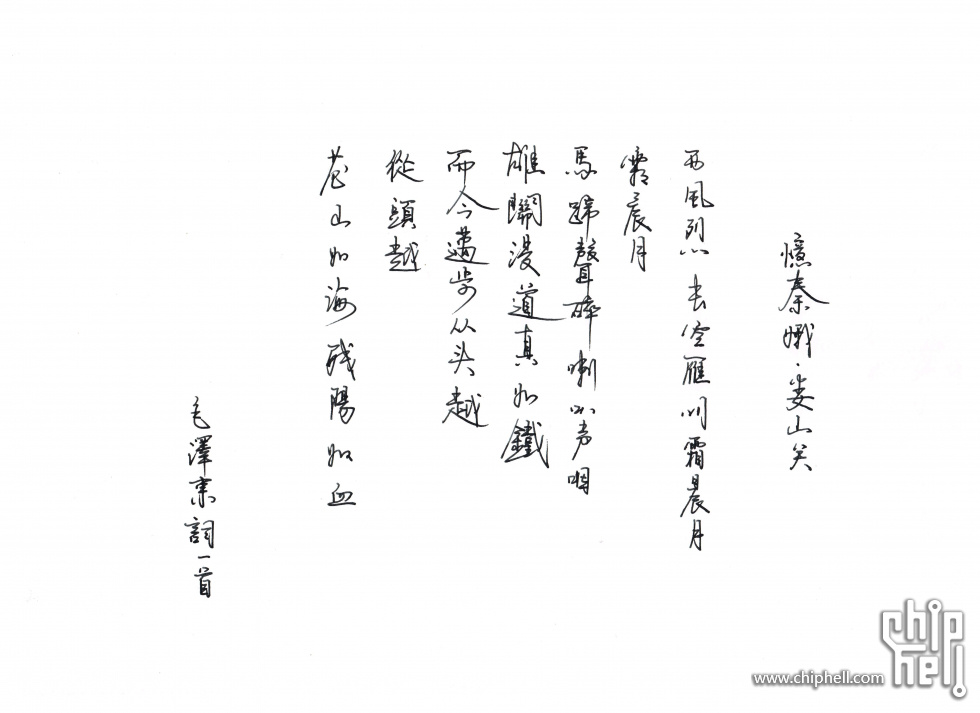 憶秦娥·娄山关
西風烈長空雁叫霜晨月
霜晨月
馬蹄聲碎喇叭声咽
雄關漫道真如鐵
而今邁步从头越
從頭越
苍山如海残陽如血
毛澤東詞一首
chip hell
www.chiphell.com